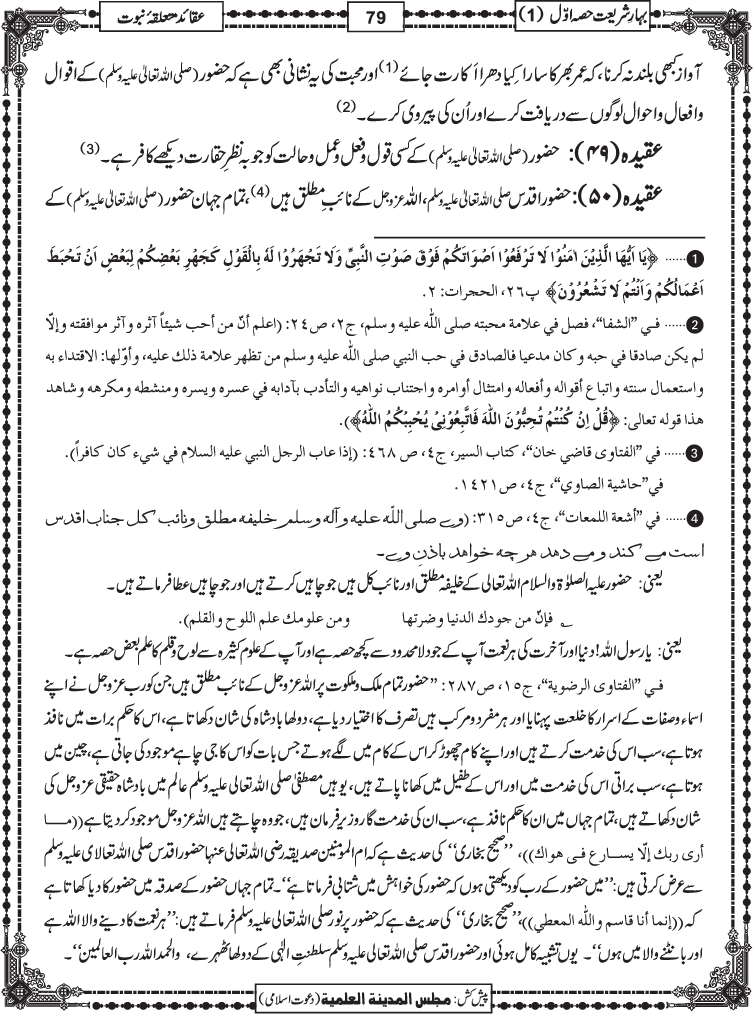 بہارِ شریعت حصہ اوّل (1)
79
عقائد متعلقۂ نبوت
آواز کبھی بلند نہ کرنا، کہ عمر بھر کا سارا کِیا دھرا اَکارت جائے (1) اور محبت کی یہ نشانی بھی ہے کہ حضور (صلی اللہ تعالیٰ علیہ وسلم) کے اقوال
و افعال و احوال لوگوں سے دریافت کرے اور اُن کی پیروی کرے۔ (2)
عقیدہ (۴۹): حضور (صلی اللہ تعالیٰ علیہ وسلم) کے کسی قول و فعل و عمل و حالت کو جو بہ نظرِ حقارت دیکھے کافر ہے۔ (3)
عقیدہ (۵۰): حضورِ اقدس صلی اللہ تعالیٰ علیہ وسلم، اللہ عزوجل کے نائبِ مطلق ہیں (4)، تمام جہان حضور (صلی اللہ تعالیٰ علیہ وسلم) کے
1 ...... ﴿یٰۤاَیُّهَا الَّذِیْنَ اٰمَنُوْا لَا تَرْفَعُوْۤا اَصْوَاتَكُمْ فَوْقَ صَوْتِ النَّبِیِّ وَلَا تَجْهَرُوْا لَهٗ بِالْقَوْلِ كَجَهْرِ بَعْضِكُمْ لِبَعْضٍ اَنْ تَحْبَطَ
اَعْمَالُكُمْ وَاَنْتُمْ لَا تَشْعُرُوْنَ﴾ پ٢٦، الحجرات: ٢.
2 ...... في ”الشفا“، فصل في علامة محبته صلى الله عليه وسلم، ج٢، ص٢٤: (اعلم أنّ من أحب شيئاً آثره وآثر موافقته وإلّا
لم يكن صادقا في حبه وكان مدعيا فالصادق في حب النبي صلى الله عليه وسلم من تظهر علامة ذلك عليه، وأوّلها: الاقتداء به
واستعمال سنته واتباع أقواله وأفعاله وامتثال أوامره واجتناب نواهيه والتأدب بآدابه في عسره ويسره ومنشطه ومكرهه وشاهد
هذا قوله تعالى: ﴿قُلْ اِنْ كُنْتُمْ تُحِبُّوْنَ اللّٰهَ فَاتَّبِعُوْنِیْ یُحْبِبْكُمُ اللّٰهُ﴾).
3 ...... في ”الفتاوى قاضي خان“، كتاب السير، ج٤، ص ٤٦٨: (إذا عاب الرجل النبي عليه السلام في شيء كان كافراً).
في ”حاشية الصاوي“، ج٤، ص١٤٢١.
4 ...... في ”أشعة اللمعات“، ج٤، ص٣١٥: (وے صلی اللّٰہ علیه وآله وسلم خلیفه مطلق ونائب کل جناب اقدس
است مے کند و مے دهد هرچه خواهد باذنِ وے۔
یعنی: حضور علیہ الصلوٰۃ والسلام اللہ تعالیٰ کے خلیفہ مطلق اور نائب کل ہیں جو چاہیں کرتے ہیں اور جو چاہیں عطا فرماتے ہیں۔
؂ فإنّ من جودك الدنيا وضرتها ومن علومك علم اللوح والقلم).
یعنی: یا رسول اللہ! دنیا اور آخرت کی ہر نعمت آپ کے جود لامحدود سے کچھ حصہ ہے اور آپ کے علومِ کثیرہ سے لوح و قلم کا علم بعض حصہ ہے۔
في ”الفتاوى الرضوية“، ج١٥، ص٢٨٧: ”حضور تمام ملک و ملکوت پر اللہ عزوجل کے نائب مطلق ہیں جن کو رب عزوجل نے اپنے
اسماء و صفات کے اسرار کا خلعت پہنایا اور ہر مفرد و مرکب میں تصرف کا اختیار دیا ہے، دولھا بادشاہ کی شان دکھاتا ہے، اس کا حکم برات میں نافذ
ہوتا ہے، سب اس کی خدمت کرتے ہیں اور اپنے کام چھوڑ کر اس کے کام میں لگے ہوتے جس بات کو اس کا جی چاہے موجود کی جاتی ہے، چین میں
ہوتا ہے، سب براتی اس کی خدمت میں اور اس کے طفیل میں کھانا پاتے ہیں، یوہیں مصطفیٰ صلی اللہ تعالیٰ علیہ وسلم عالم میں بادشاہ حقیقی عزوجل کی
شان دکھاتے ہیں، تمام جہاں میں ان کا حکم نافذ ہے، سب ان کی خدمت گار و زیر فرمان ہیں، جو وہ چاہتے ہیں اللہ عزوجل موجود کر دیتا ہے ((ما
أرى ربك إلّا يسارع في هواك))، ”صحیح بخاری“ کی حدیث ہے کہ ام المؤمنین صدیقہ رضی اللہ تعالیٰ عنہا حضور اقدس صلی اللہ تعالیٰ علیہ وسلم
سے عرض کرتی ہیں: ”میں حضور کے رب کو دیکھتی ہوں کہ حضور کی خواہش میں شتابی فرماتا ہے“۔ تمام جہاں حضور کے صدقہ میں حضور کا دیا کھاتا ہے
کہ ((إنما أنا قاسم واللّٰه المعطي))، ”صحیح بخاری“ کی حدیث ہے کہ حضور پر نور صلی اللہ تعالیٰ علیہ وسلم فرماتے ہیں: ”ہر نعمت کا دینے والا اللہ ہے
اور بانٹنے والا میں ہوں“۔ یوں تشبیہ کامل ہوئی اور حضور اقدس صلی اللہ تعالیٰ علیہ وسلم سلطنتِ الٰہی کے دولھا ٹھہرے، والحمد اللہ رب العالمین“۔
پیش کش: مجلس المدینة العلمیة (دعوت اسلامی)